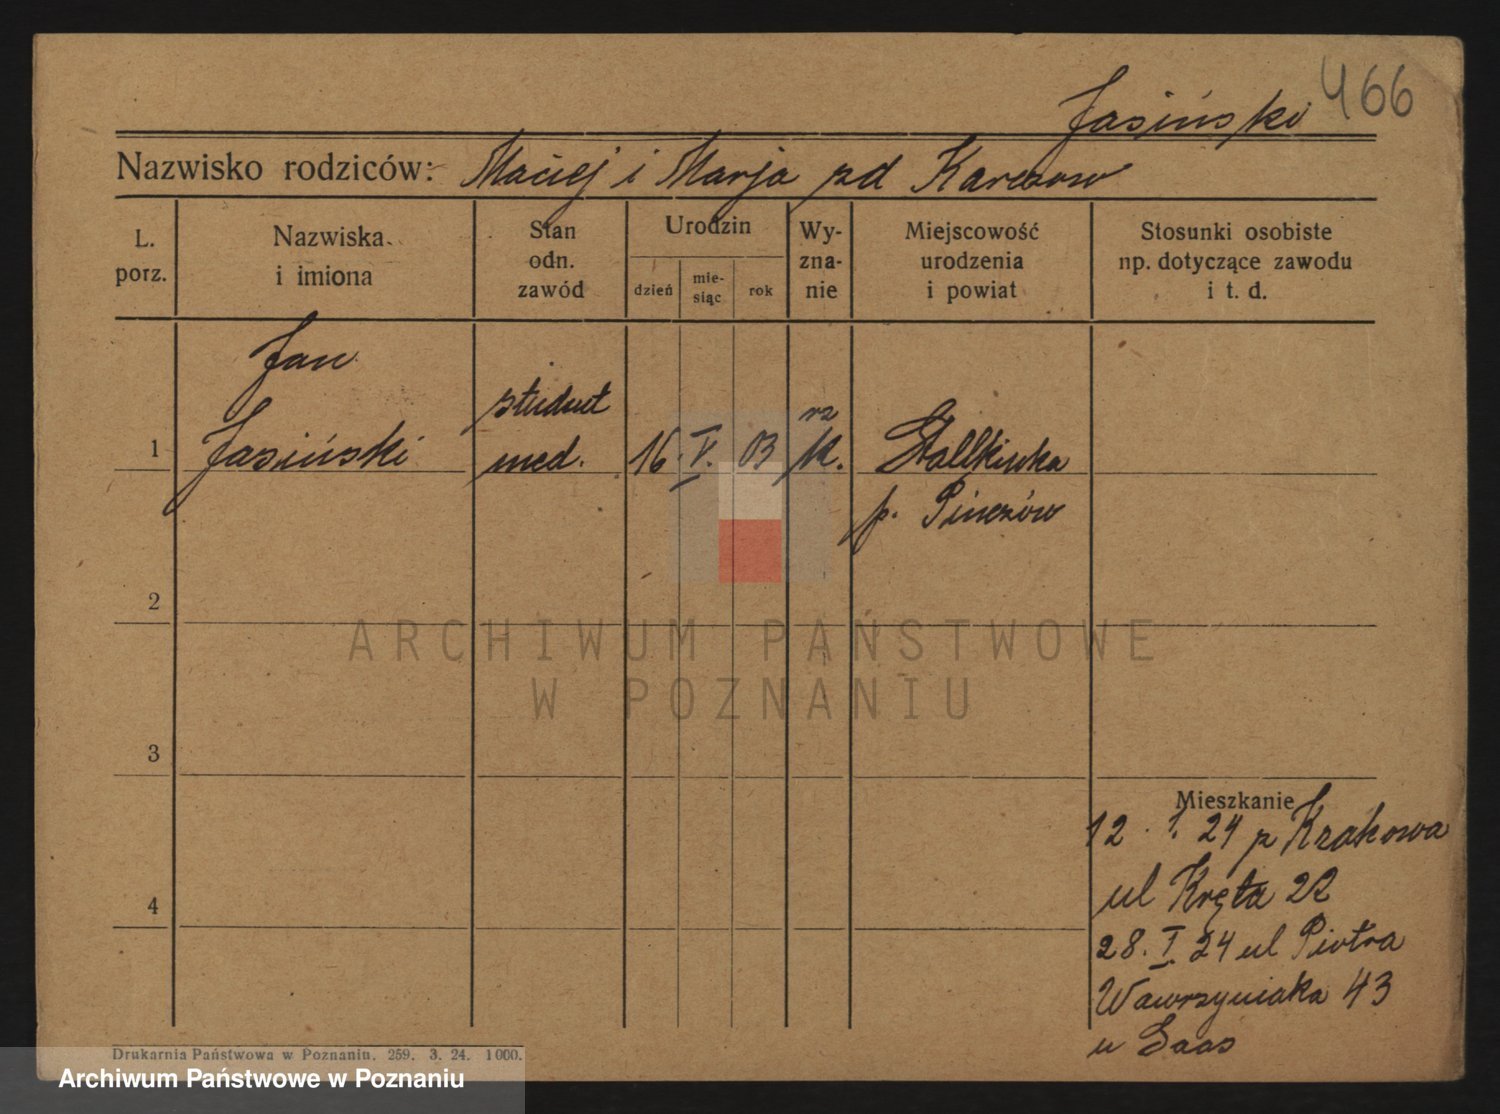 466
Jasiński
Nazwisko rodziców: Maciej i Marja zd Karczow
L. porz.
Nazwiska i imiona
Stan odn. zawód
Urodzin
dzień
mie-
siąc
rok
Wy-
zna-
nie
Miejscowość
urodzenia
i powiat
Stosunki osobiste
np. dotyczące zawodu
i t. d.
Jan
student
rz
1 Jasiński med. 16. V. 03 k.
p. Pinczów
2
ARCHIWUM PAŃSTWOWE
W POZNANIU
3
Mieszkanie
12. 1. 24 z Krakowa
ul Kręta 22
4
28. I. 24 ul Piotra
Wawrzyniaka 43
u Saas
Drukarnia Państwowa w Poznaniu. 259. 3. 24. 1000.
Archiwum Państwowe w Poznaniu